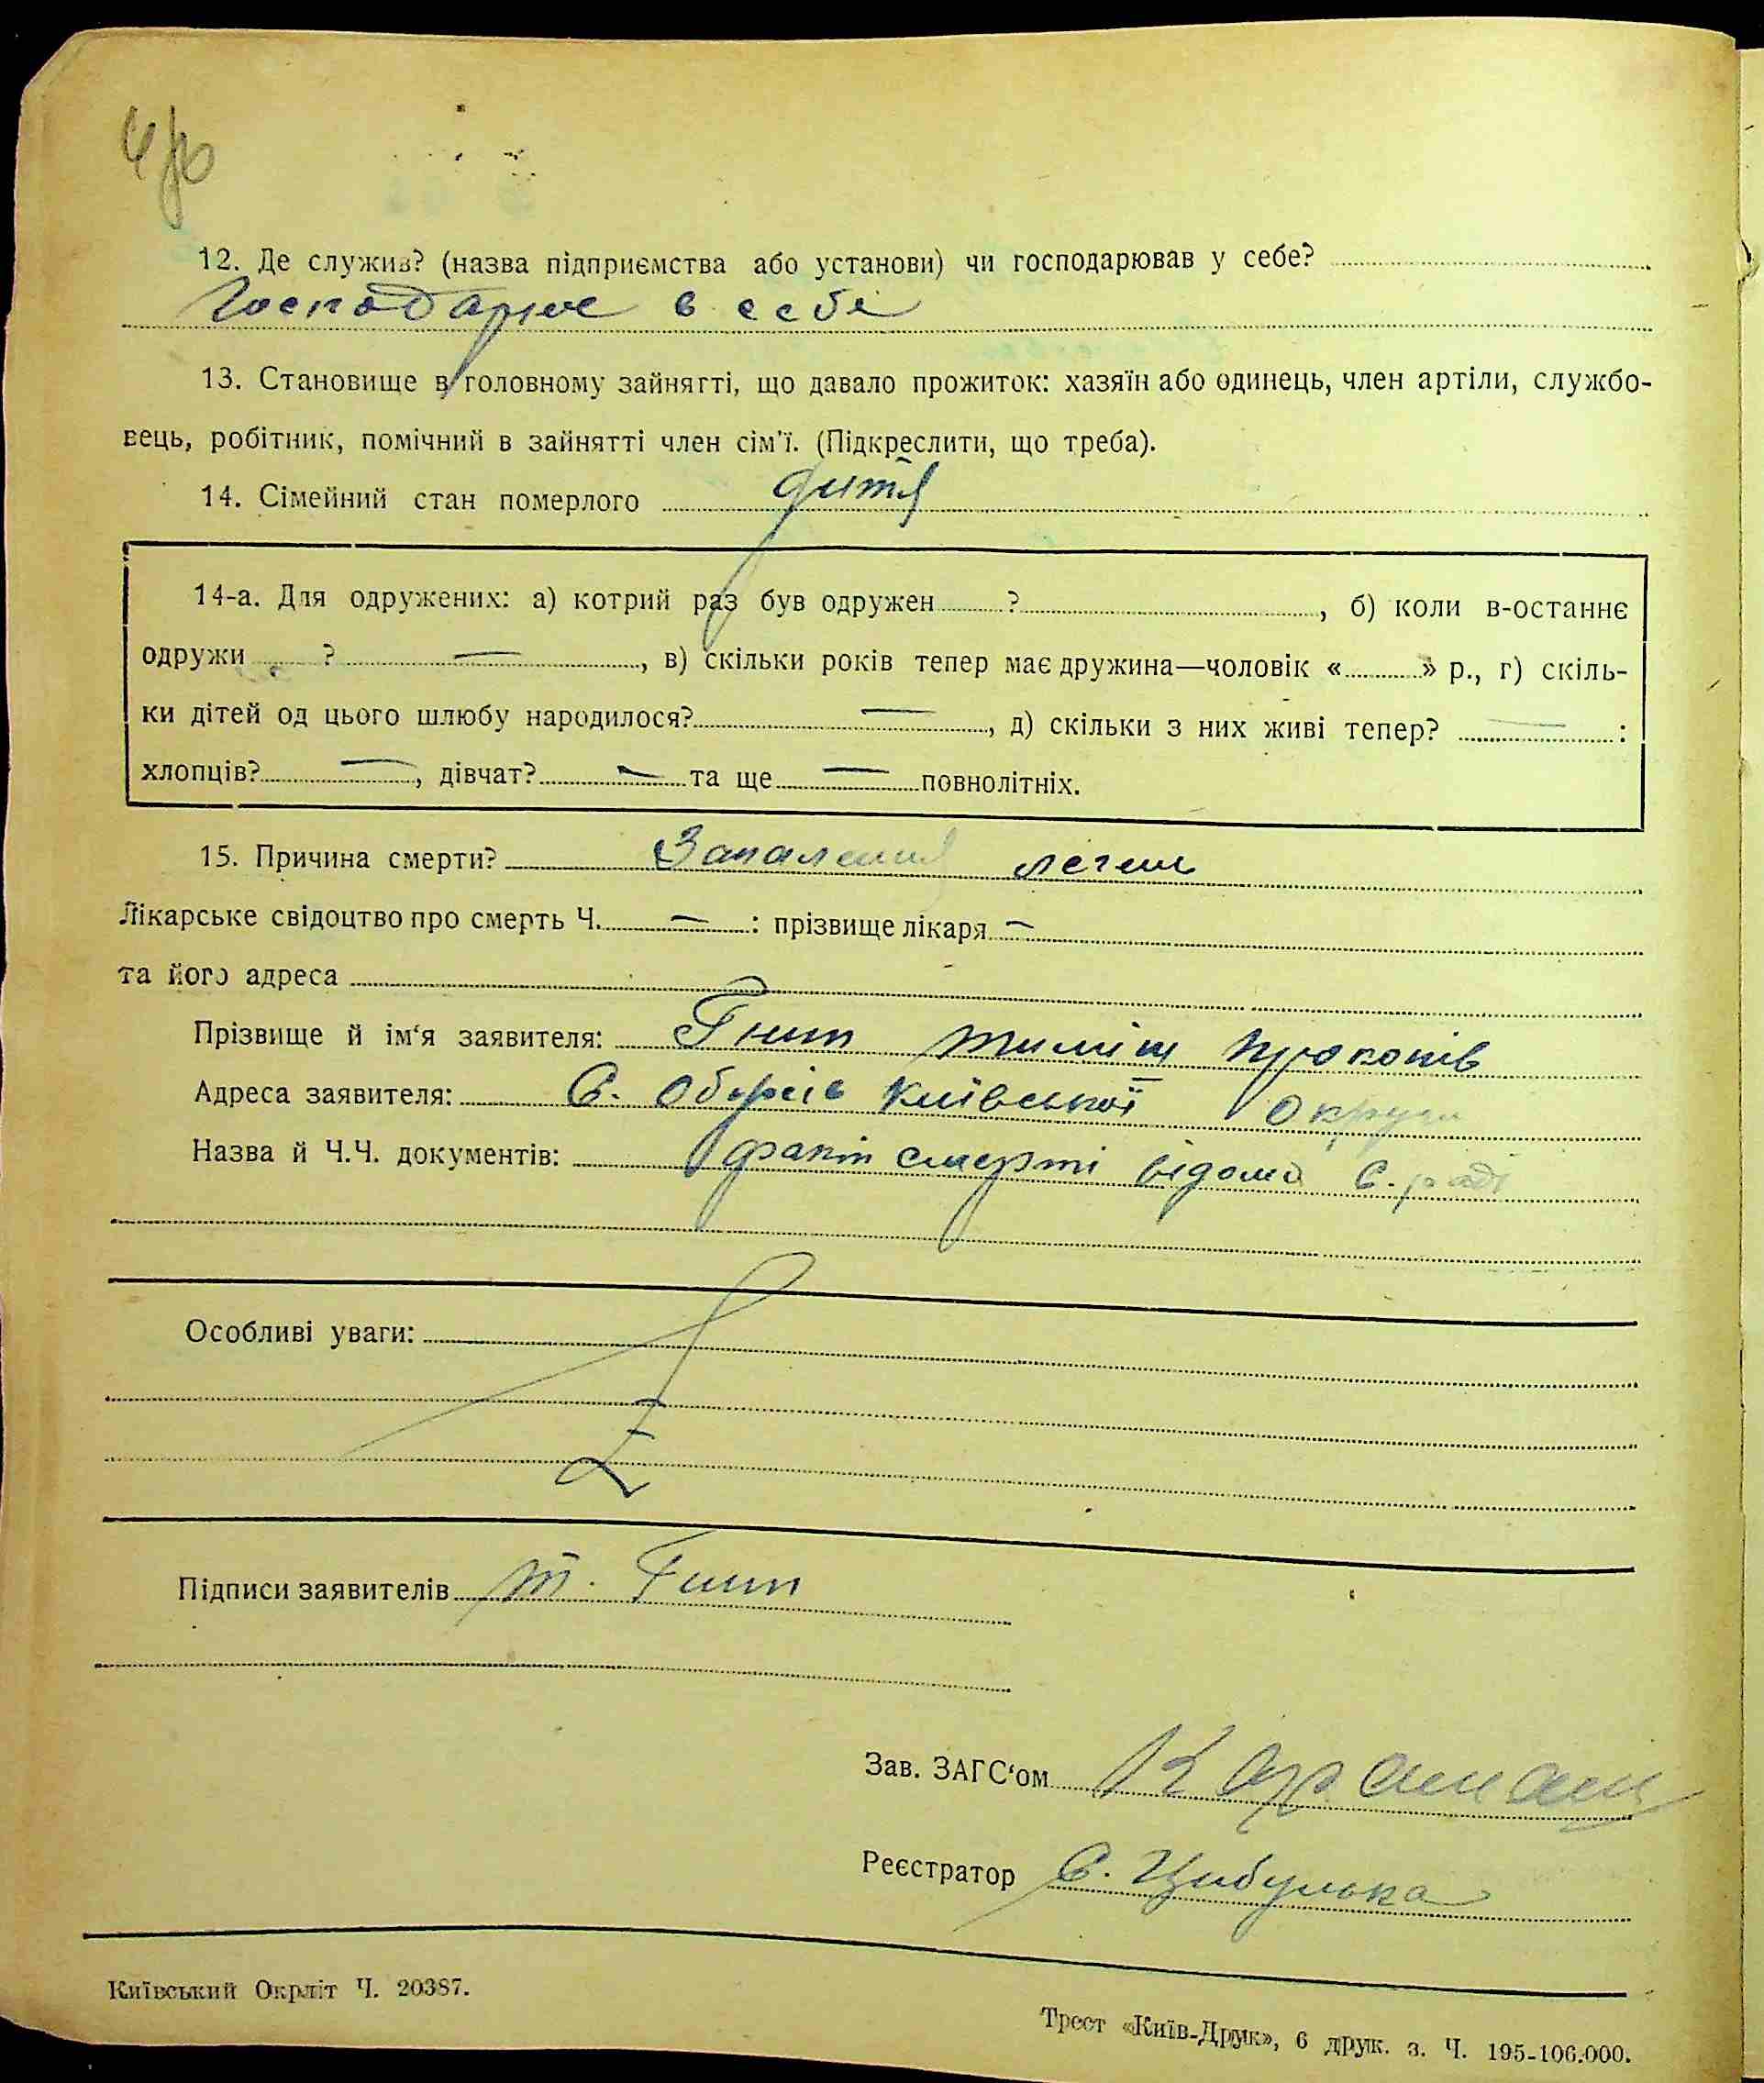 12. Де служив? (назва підприємства або установи) чи господарював у себе?
Господарює в себе
13. Становище в головному зайнятті, що давало прожиток: хазяїн або одинець, член артіли, службо-
вець, робітник, помічний в зайнятті член сім'ї. (Підкреслити, що треба).
14. Сімейний стан померлого дитя
14-а. Для одружених: а) котрий раз був одружен ? , б) коли в-останнє
одружи ? — , в) скільки років тепер має дружина—чоловік « » р., г) скіль-
ки дітей од цього шлюбу народилося? — , д) скільки з них живі тепер? — :
хлопців? — , дівчат? — та ще — повнолітніх.
15. Причина смерти? Запалення легень
Лікарське свідоцтво про смерть Ч. — : прізвище лікаря —
та його адреса
Прізвище й ім'я заявителя: Гнип Тиміш Прокопів
Адреса заявителя: С. Київської Округи
Назва й Ч.Ч. документів: факт смерті відома С. раді
Особливі уваги:
Підписи заявителів Т. Гнип
Зав. ЗАГС'ом
Реєстратор С. Цибулька
Київський Окрліт Ч. 20387.
Трест «Київ-Друк», 6 друк. з. Ч. 195-106.000.